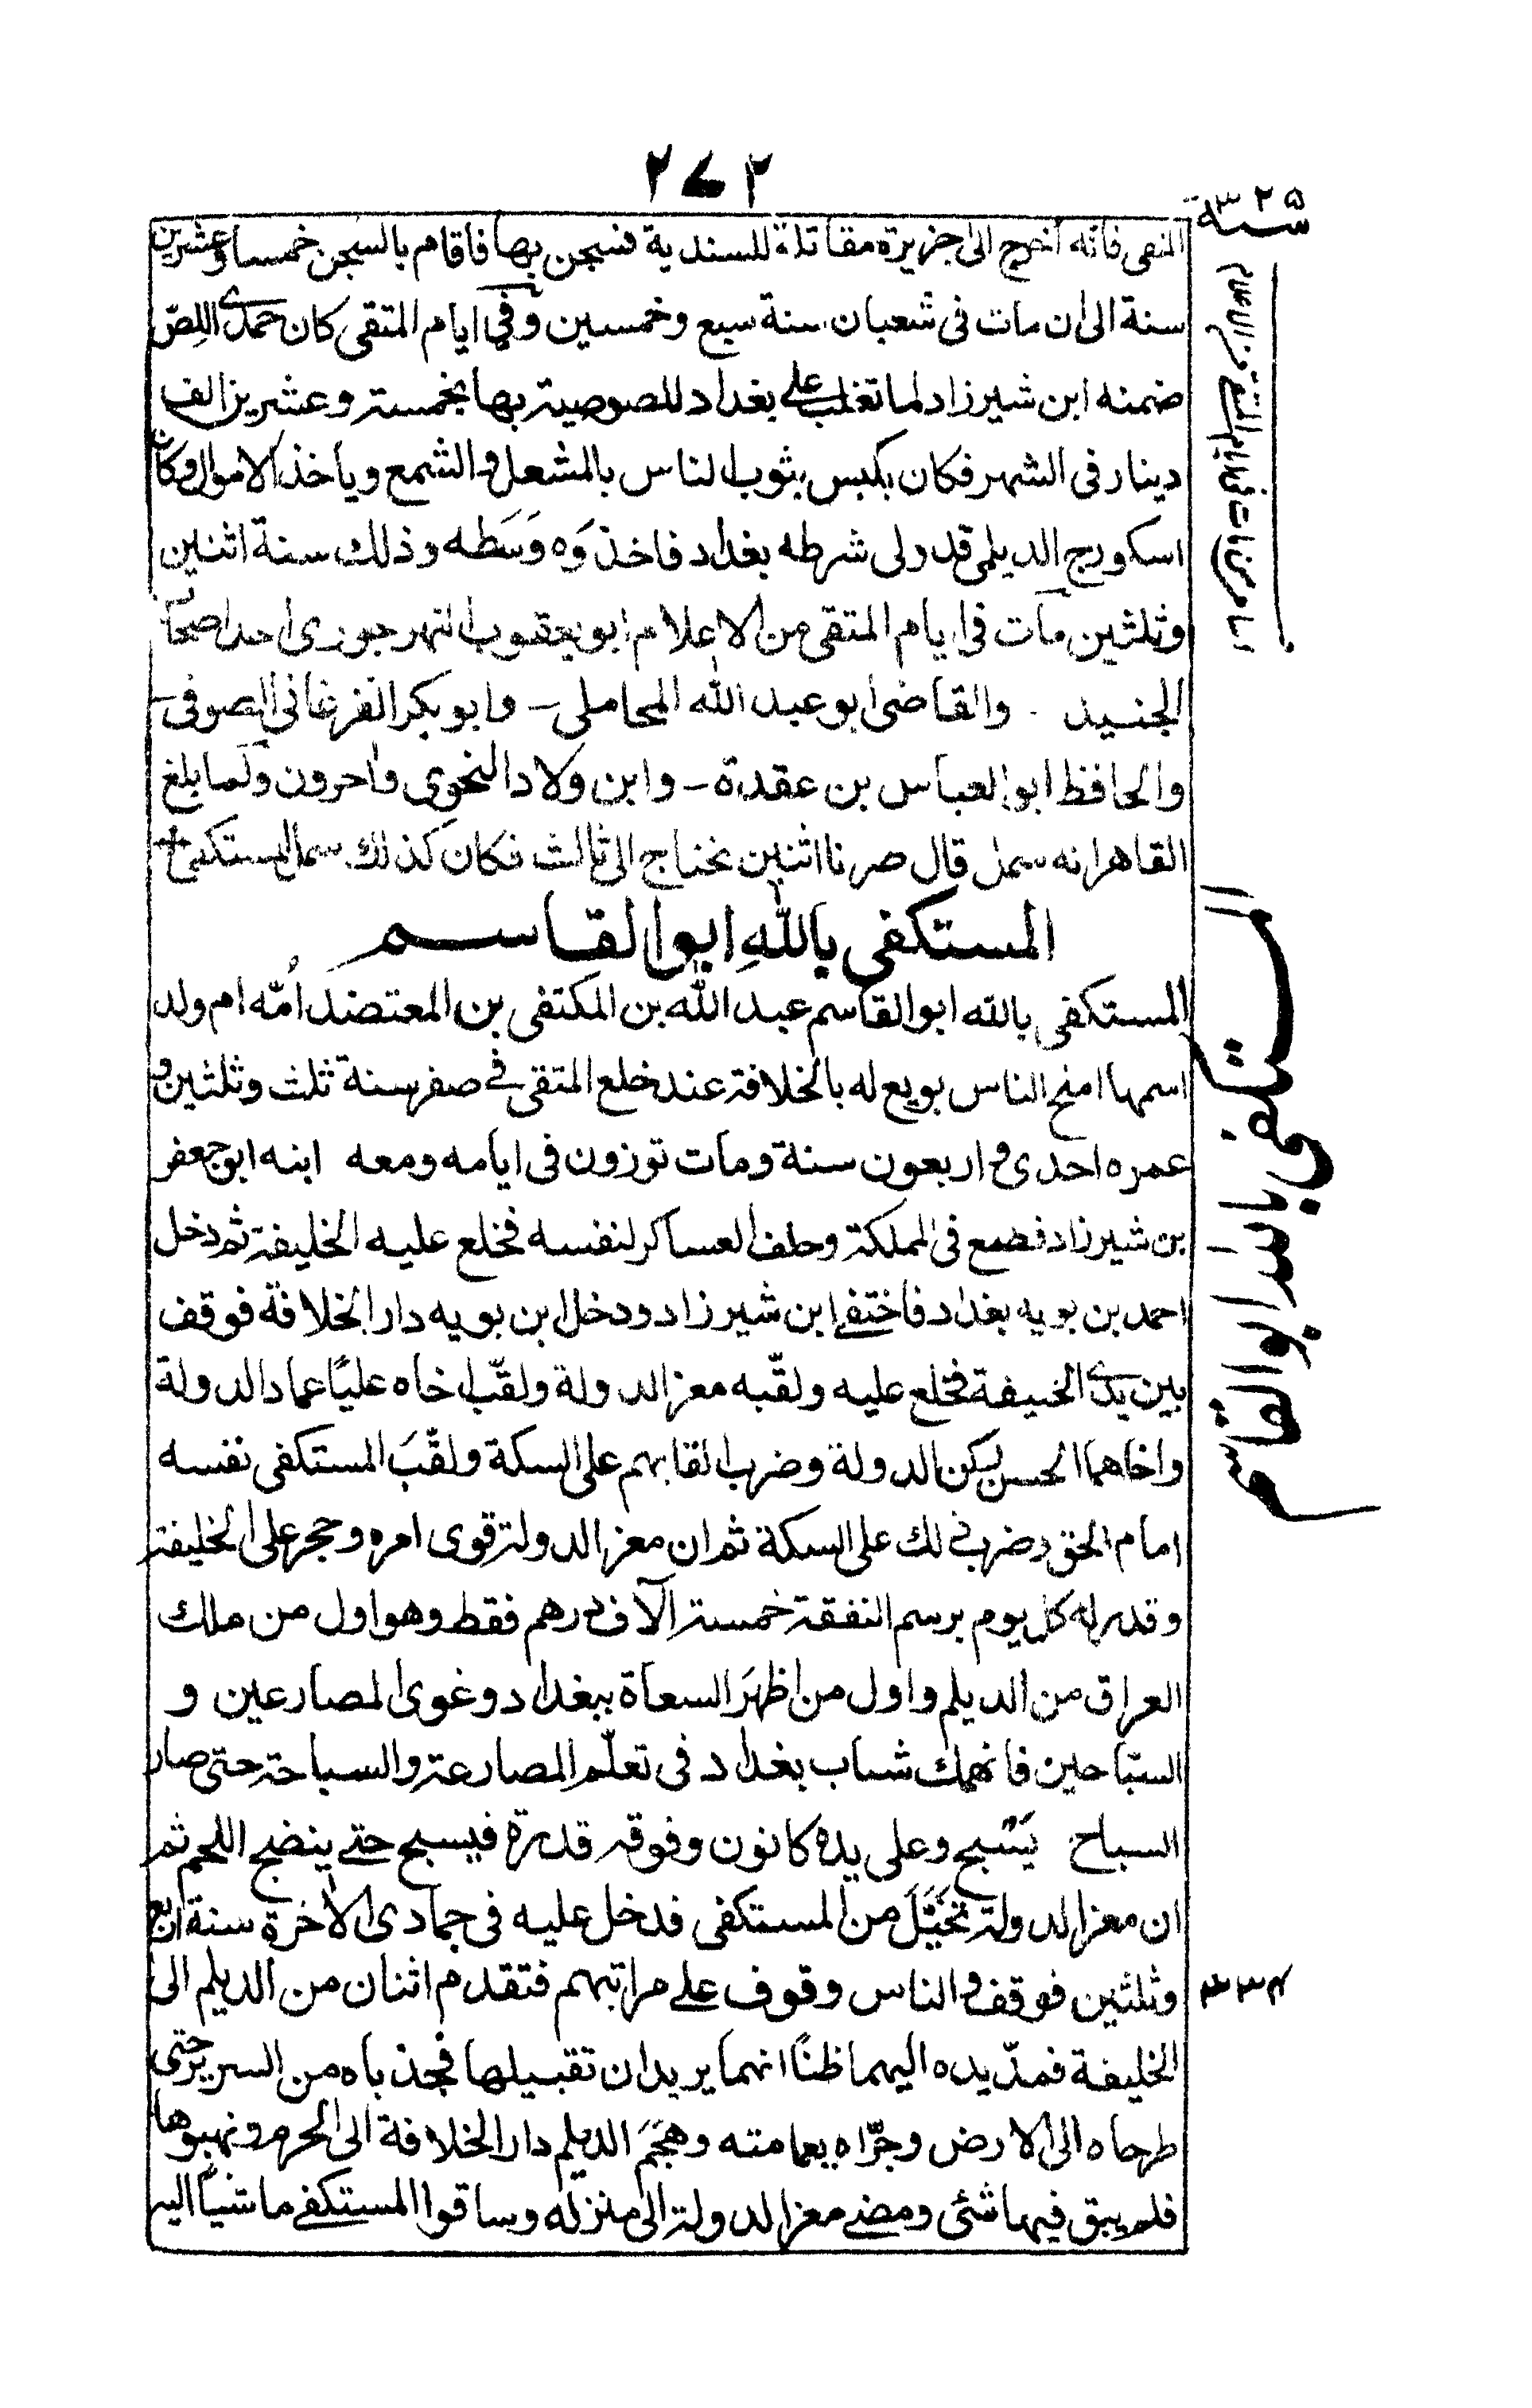 ٢٧٢
سنة ٣٢٥
المتقى فانه اخرج الى جزيرة مقاتلة للسندية فسجن بها فاقام بالسجن خمسا وعشرين
سنة الى ان مات فى شعبان سنة سبع وخمسين وفي ايام المتقى كان حمدى اللص
ضمنه ابن شيرزاد لما تغلب على بغداد للصوصية بها بخمسة وعشرين الف
دينار فى الشهر فكان يكبس بثوب الناس بالمشعل والشمع وياخذ الاموال وكان
اسكورج الديلمى قد ولى شرطه بغداد فاخذوه وَسَطه وذلك سنة اثنين
وثلثين مات فى ايام المتقى من الاعلام ابو يعقوب النهرجورى احد اصحاب
الجنيد . والقاضى ابو عبد الله المحاملى - وابو بكر الفرغانى الصوفى -
والحافظ ابو العباس بن عقدة - وابن ولاد النحوى واخرون ولما بلغ
القاهر انه سمل قال صرنا اثنين نحتاج الى ثالث فكان كذلك سمل المستكفى +
المستكفى بالله ابو القاسم
المستكفى بالله ابو القاسم عبد الله بن المكتفى بن المعتضد اُمّه ام ولد
اسمها املح الناس بويع له بالخلافة عند خلع المتقى فى صفر سنة ثلث وثلثين و
عمره احدى و اربعون سنة ومات توزون فى ايامه ومعه ابنه ابو جعفر
بن شيرزاد فطمع فى المملكة وحلف العساكر لنفسه فخلع عليه الخليفة ثم دخل
احمد بن بويه بغداد فاختفى ابن شيرزاد ودخل ابن بويه دار الخلافة فوقف
بين يدى الخليفة فخلع عليه ولقّبه معز الدولة ولقّب اخاه عليًا عماد الدولة
واخاهما الحسن ركن الدولة وضرب القابهم على السكة ولقّبَ المستكفى نفسه
امام الحق وضرب ذلك على السكة ثم ان معز الدولة قوى امره وحجر على الخليفة
وقدر له كل يوم برسم النفقة خمسة الآف درهم فقط وهو اول من ملك
العراق من الديلم واول من اظهرَ السعاة ببغداد وغوى المصارعين و
السبّاحين فانهمك شباب بغداد فى تعلّم المصارعة والسباحة حتى صار
السباح يَسْبح وعلى يده كانون وفوقه قدرة فيسبح حتى ينضج اللحم ثم
ان معز الدولة تَخَيَّلَ من المستكفى فدخل عليه فى جمادى الاخرة سنة اربع
وثلثين فوقف والناس وقوف على مراتبهم فتقدم اثنان من الديلم الى
الخليفة فمدّ يده اليهما ظنًا انهما يريدان تقبيلها فجذباه من السرير حتى
طرحاه الى الارض وجرّاه بعمامته وهجَمَ الديلم دار الخلافة الى الحرم ونهبوها
فلم يبق فيها شئى ومضى معز الدولة الى منزله وساقوا المستكفى ماشيًا اليه
المستكفى بالله ابو القاسم
٣٣٤